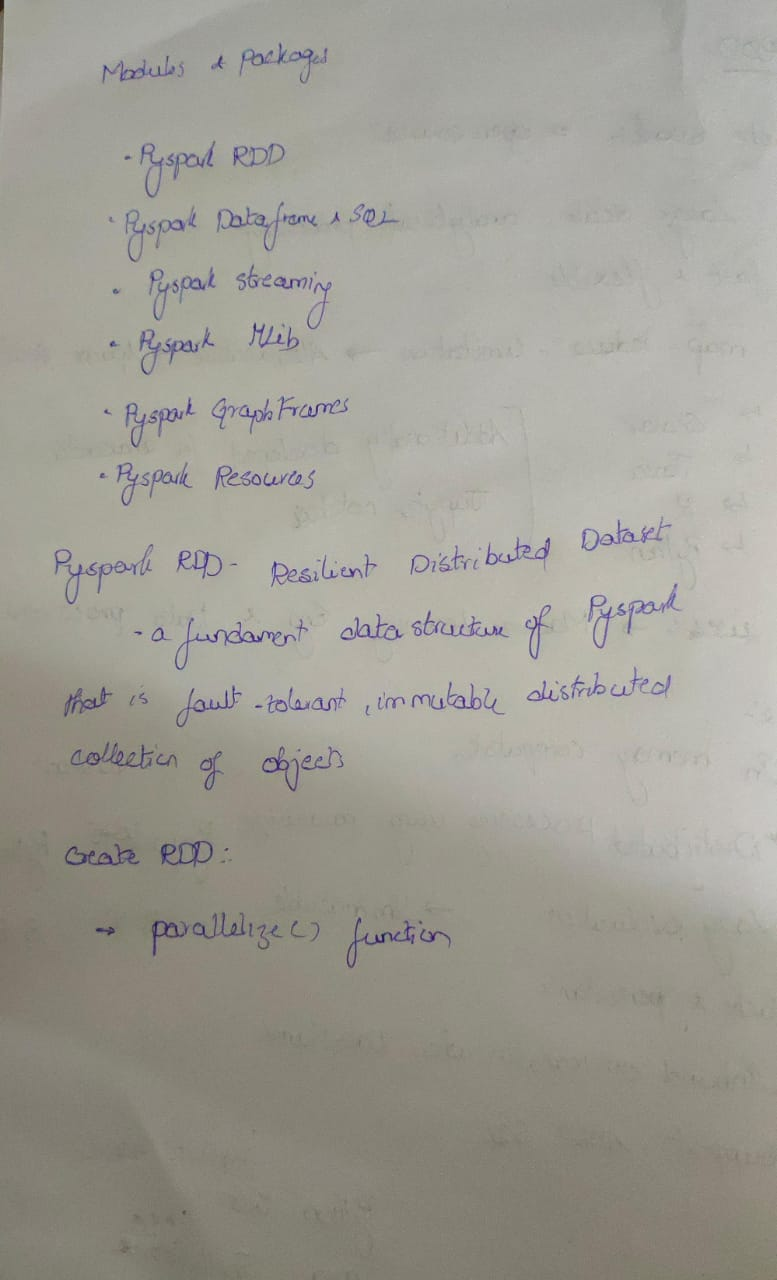 Modules & Packages
- Pyspark RDD
• Pyspark Dataframe & SQL
• Pyspark Streaming
• Pyspark MLib
• Pyspark GraphFrames
• Pyspark Resources
Pyspark RDD - Resilient Distributed Dataset
- a fundament data structure of Pyspark
that is fault-tolerant, immutable distributed
collection of objects
Create RDD:
→ parallelize() function